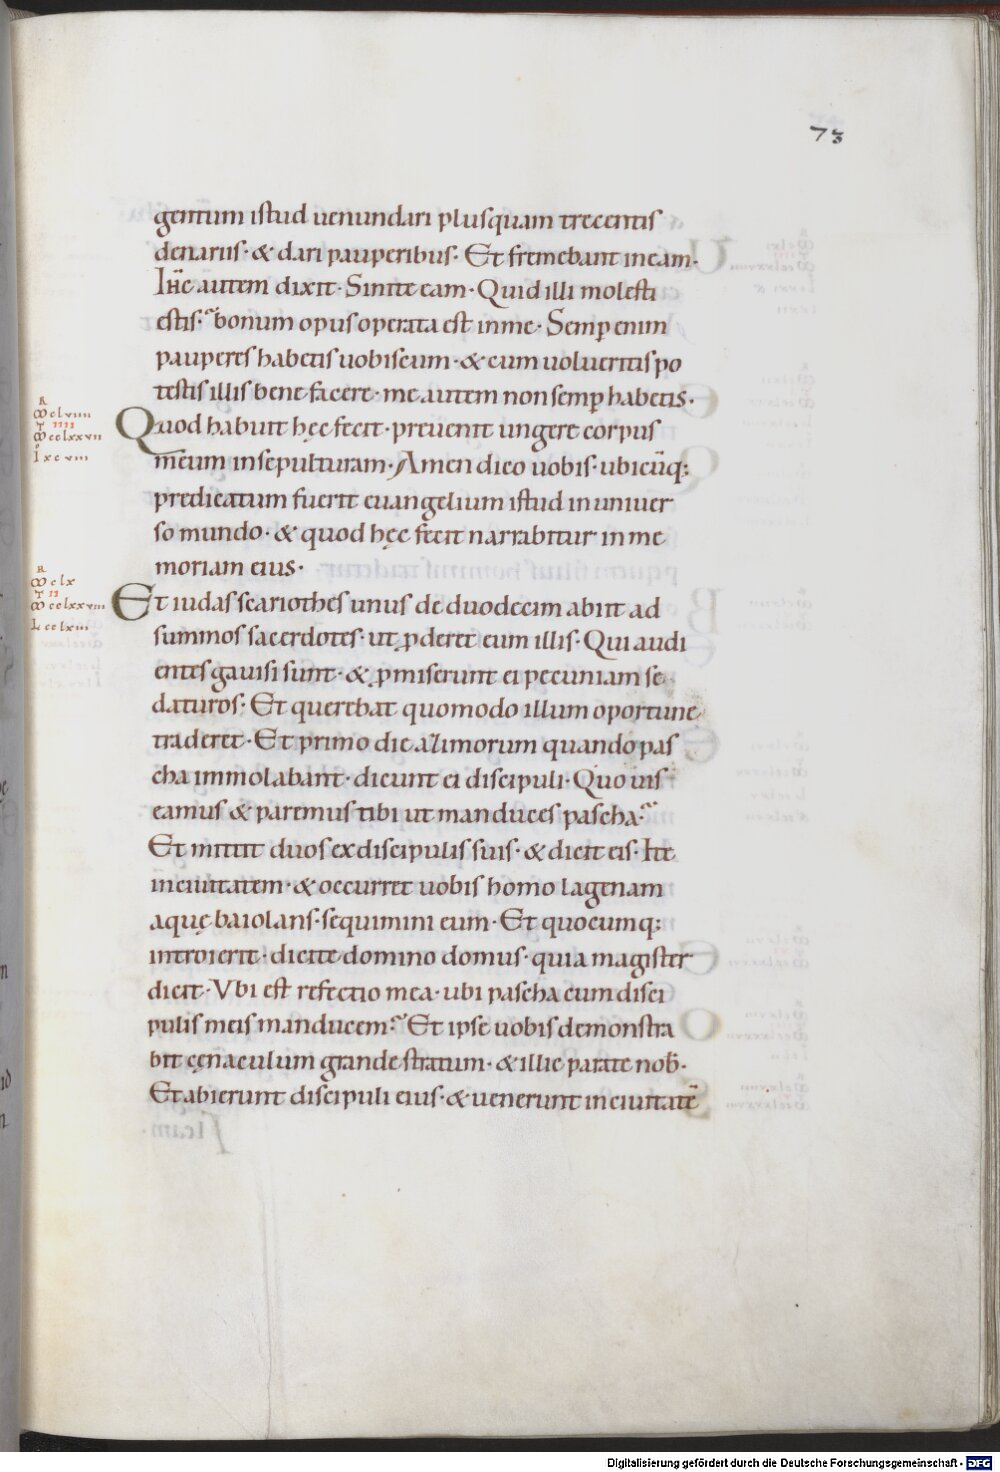 73
gentum istud uenundari plusquam trecentis
denariis· & dari pauperibus· Et fremebant in eam·
Ihc̄ autem dixit· Sinite eam· Quid illi molesti
estis· bonum opus operata est in me· Semp̲ enim
pauperes habetis uobiscum· & cum uolueritis po
testis illis bene facere· me autem non semp̲ habetis·
Quod habuit hęc fecit· preuenit ungere corpus
meum in sepulturam· Amen dico uobis· ubicūq;
predicatum fuerit euangelium istud in uniuer
so mundo· & quod hęc fecit narrabitur in me
moriam eius·
Et iudas scariothes unus de duodecim abiit ad
summos sacerdotes· ut ꝓderet eum illis· Qui audi
entes gauisi sunt· & ꝓmiserunt ei pecuniam se
daturos· Et querebat quomodo illum oportune
traderet· Et primo die azimorum quando pas
cha immolabant· dicunt ei discipuli· Quo uis
eamus & paremus tibi ut manduces pascha·
Et mittit duos ex discipulis suis· & dicit eis· Ite
in ciuitatem· & occurret uobis homo lagenam
aquę baiolans· sequimini eum· Et quocumq;
introierit· dicite domino domus· quia magister
dicit· Vbi est refectio mea· ubi pascha cum disci
pulis meis manducem· Et ipse uobis demonstra
bit cęnaculum grande stratum· & illic parate nob̄·
Et abierunt discipuli eius· & uenerunt in ciuitatē
Digitalisierung gefördert durch die Deutsche Forschungsgemeinschaft - DFG